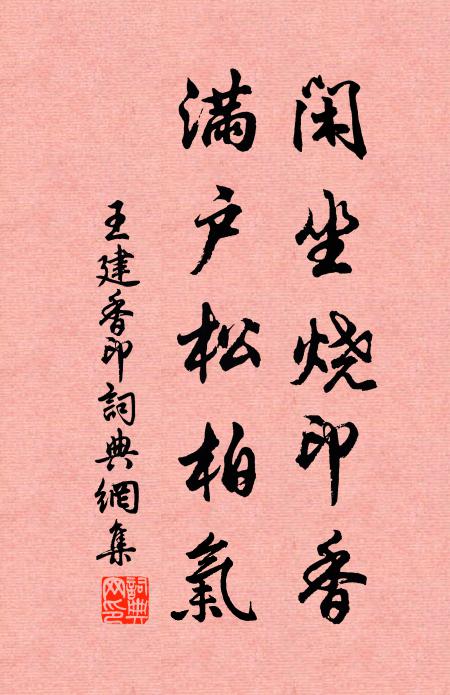 闲坐烧印香
满户松柏氣
王建香印詞典網集
詞典网印